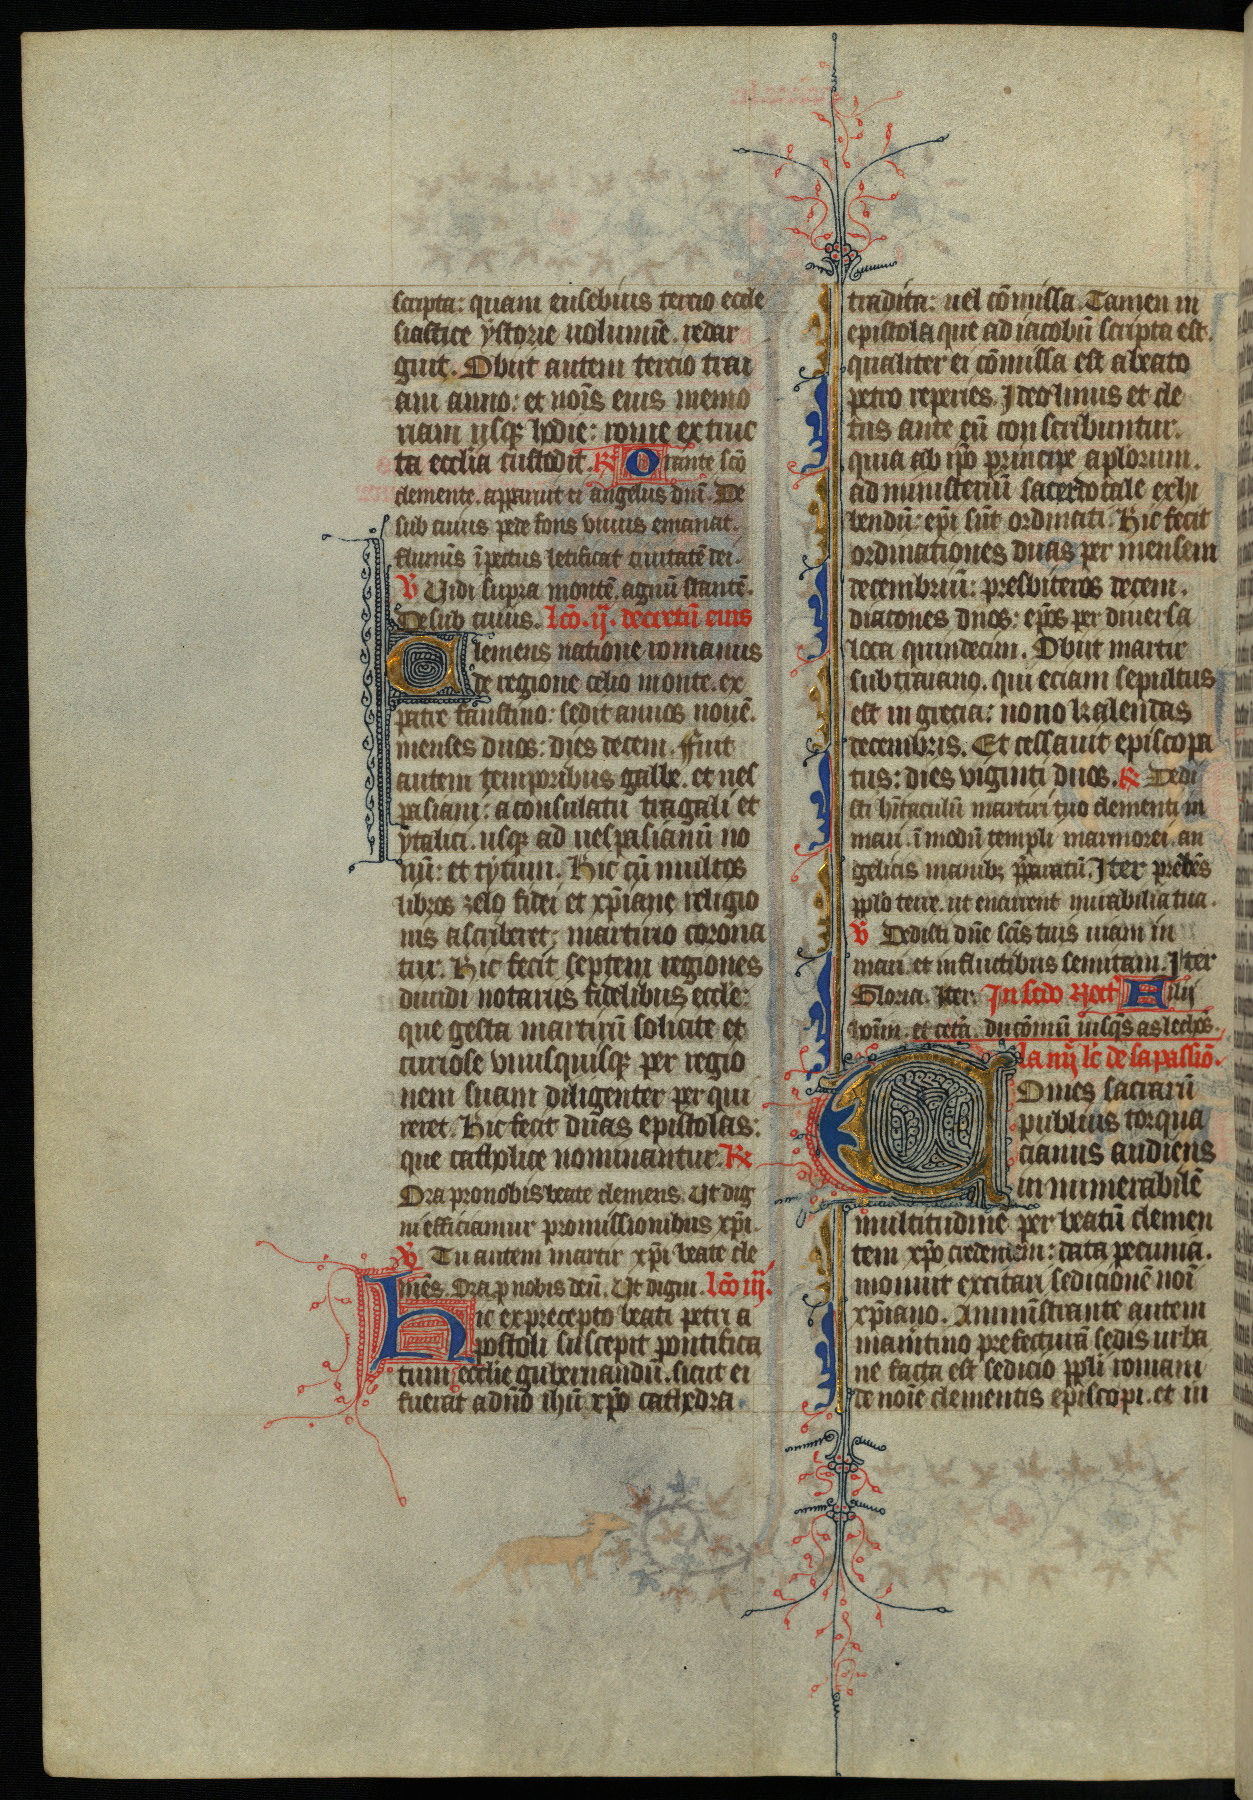 scripta: quam eusebius tercio eccle
siastice ystorie uolumīe. redar
guit. Obiit autem tercio trai
ani anno: et noīs eius memo
riam usqꝫ hodie: rome extruc
ta ecclīa custodit. R̸ Orante scō
clemente. apparuit ei angelus dn̄i. De
sub cuius pede fons viuus emanat.
flumīs īpetus letificat ciuitatē dei.
V̸ Uidi supra montē. agnū stantē.
De sub cuius. lcō. ij. decretū eius
Clemens natione romanus
de regione celio monte. ex
patre faustino: sedit annos nouē.
menses duos: dies decem. Fuit
autem temporibus galbe. et ues
pasiani: a consulatu tragali et
ytalici. usqꝫ ad uespasianū no
nū: et tytum. Hic cū multos
libros zelo fidei et xp̄iane religio
nis ascriberet: martirio corona
tur. Hic fecit septem regiones
diuidi notariis fidelibus eccle:
que gesta martirū solicite et
curiose vnusquisqꝫ per regio
nem suam diligenter perqui
reret. Hic fecit duas epistolas:
que catholice nominantur. R̸
Ora pro nobis beate clemens. Ut dig
ni efficiamur promissionibus xp̄i.
V̸ Tu autem martir xp̄i beate cle
mēs. Ora p nobis deū. Ut digni. lcō iij.
Hic ex precepto beati petri a
postoli suscepit pontifica
tum ecclīe gubernandū. sicut ei
fuerat a dn̄o ihū xp̄o cathedra
tradita: uel cōmissa. Tamen in
epistola que ad iacobū scripta est.
qualiter ei cōmissa est a beato
petro reperies. Ideo linus et cle
tus ante eū conscribuntur.
quia ab ip̄o principe apl̄orum.
ad ministeriū sacerdotale exhi
bendū: ep̄i sūt ordinati. Hic fecit
ordinationes duas per mensem
decembriū: presbiteros decem.
diacones duos: ep̄os per diuersa
loca quindecim. Obiit martir
sub traiano. qui eciam sepultus
est in grecia: nono kalendas
decembris. Et cessauit episcopa
tus: dies viginti duos. R̸ Dedi
sti hītaculū martiri tuo clementi in
mari. ī modū templi marmorei. an
gelicis manibꝫ p̄paratū. Iter prebēs
ppl̄o terre. ut enarrent mirabilia tua.
V̸ Dedisti dn̄e scīs tuis uiam in
mari. et in fluctibus semitam. Iter
Gloria. Iter. In scd̄o Noct̄ Filij
hoīm. et cetā. du cōmū iusqs̄ as lecho̅s.
la iiij lc̄ de sa passiō.
Comes sacrarū
publius torqua
cianus audiens
innumerabilē
multitudinē per beatū clemen
tem xp̄o credentem: data pecunia.
monuit excitari sedicionē noī
xp̄iano. Aminīstrante autem
mam̄tino prefecturā sedis urba
ne facta est sedicio ppl̄i romani
de noīe clementis episcopi. et in